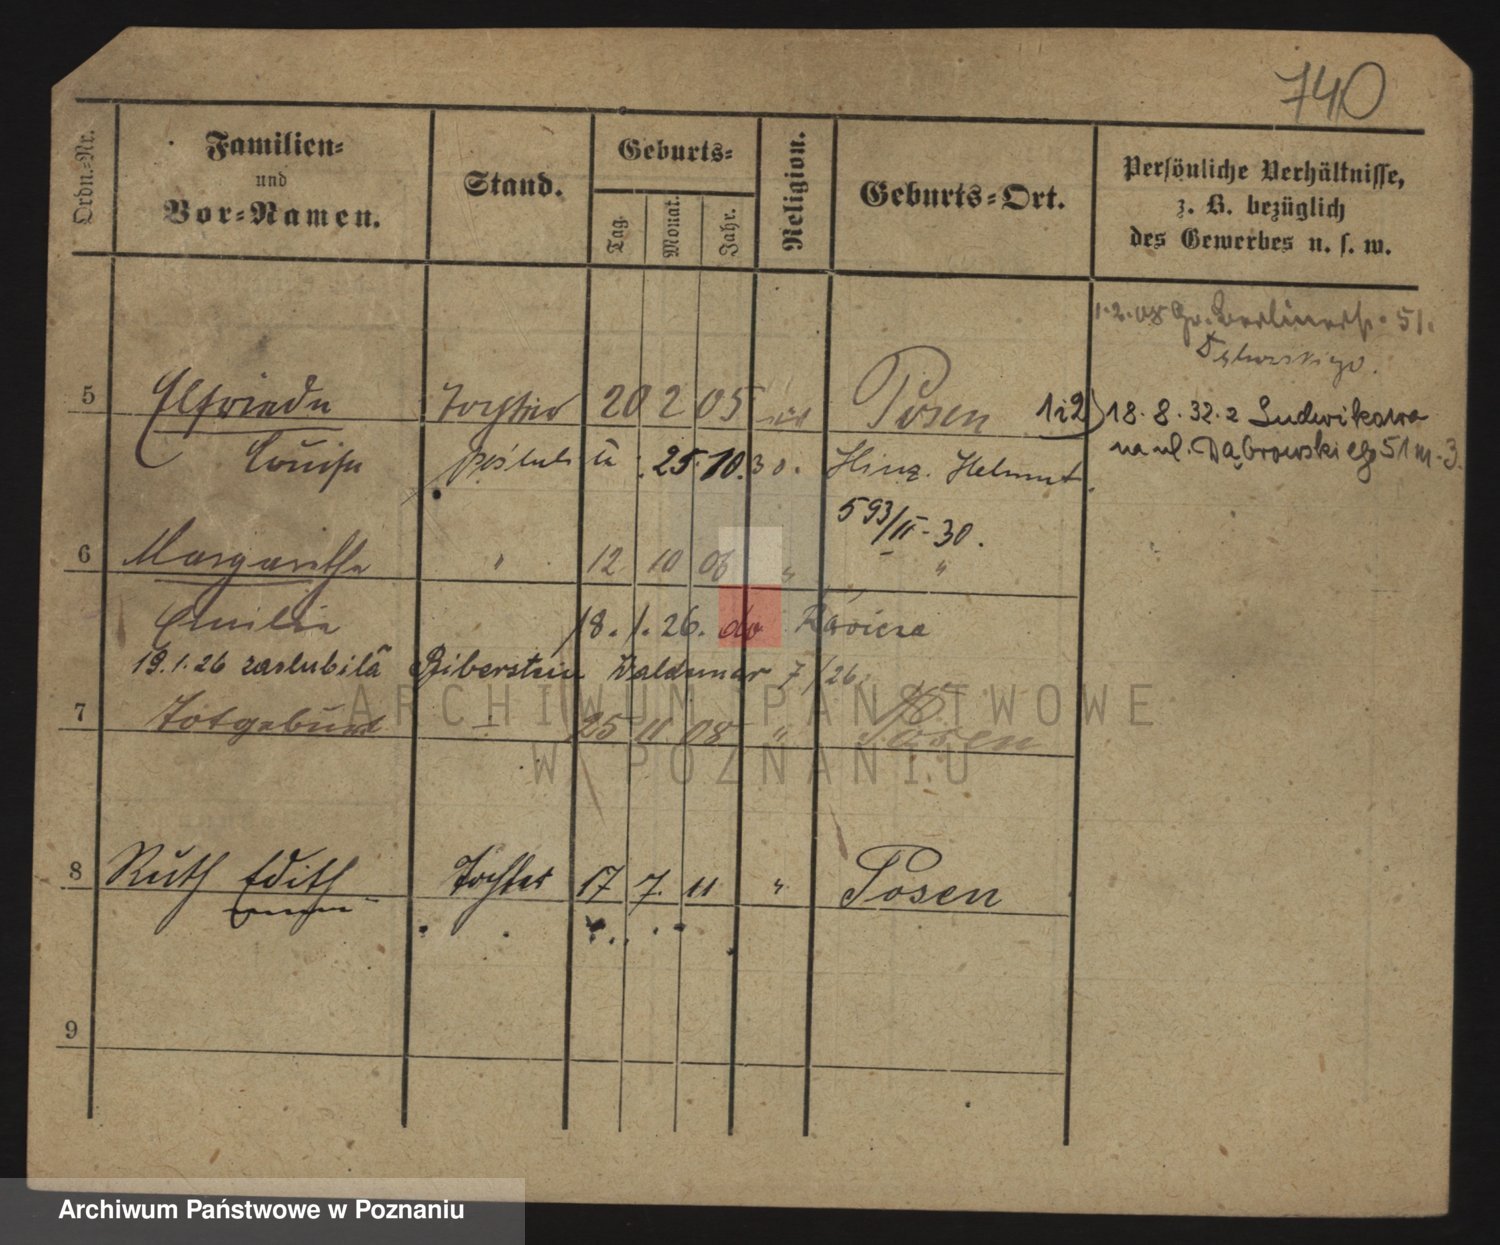 740
Ordn.-Nr.
Familien-
und
Vor-Namen.
Stand.
Geburts-
Tag.
Monat.
Jahr.
Religion.
Geburts-Ort.
Persönliche Verhältnisse,
z. B. bezüglich
des Gewerbes u. s. w.
1.2.08 Gr. Berlinerstr. 51.
5 Elfriede Tochter 20 2 05 Posen 1 i 2) 18.8.32. z Ludwikowa
Louise 25.10.30. Hinz. Helmut na ul. Dąbrowskiego 51 m. 3.
593/II-30.
6 Margarethe " 12 10 06 " "
Emilie 18.1.26. do Rawicza
19.1.26 zaslubila Biberstein Waldemar 7/26.
7 Totgeburt - 25 11 08 " Posen
ARCHIWUM PAŃSTWOWE
W POZNANIU
8 Ruth Edith Tochter 17 7. 11 " Posen
9
Archiwum Państwowe w Poznaniu